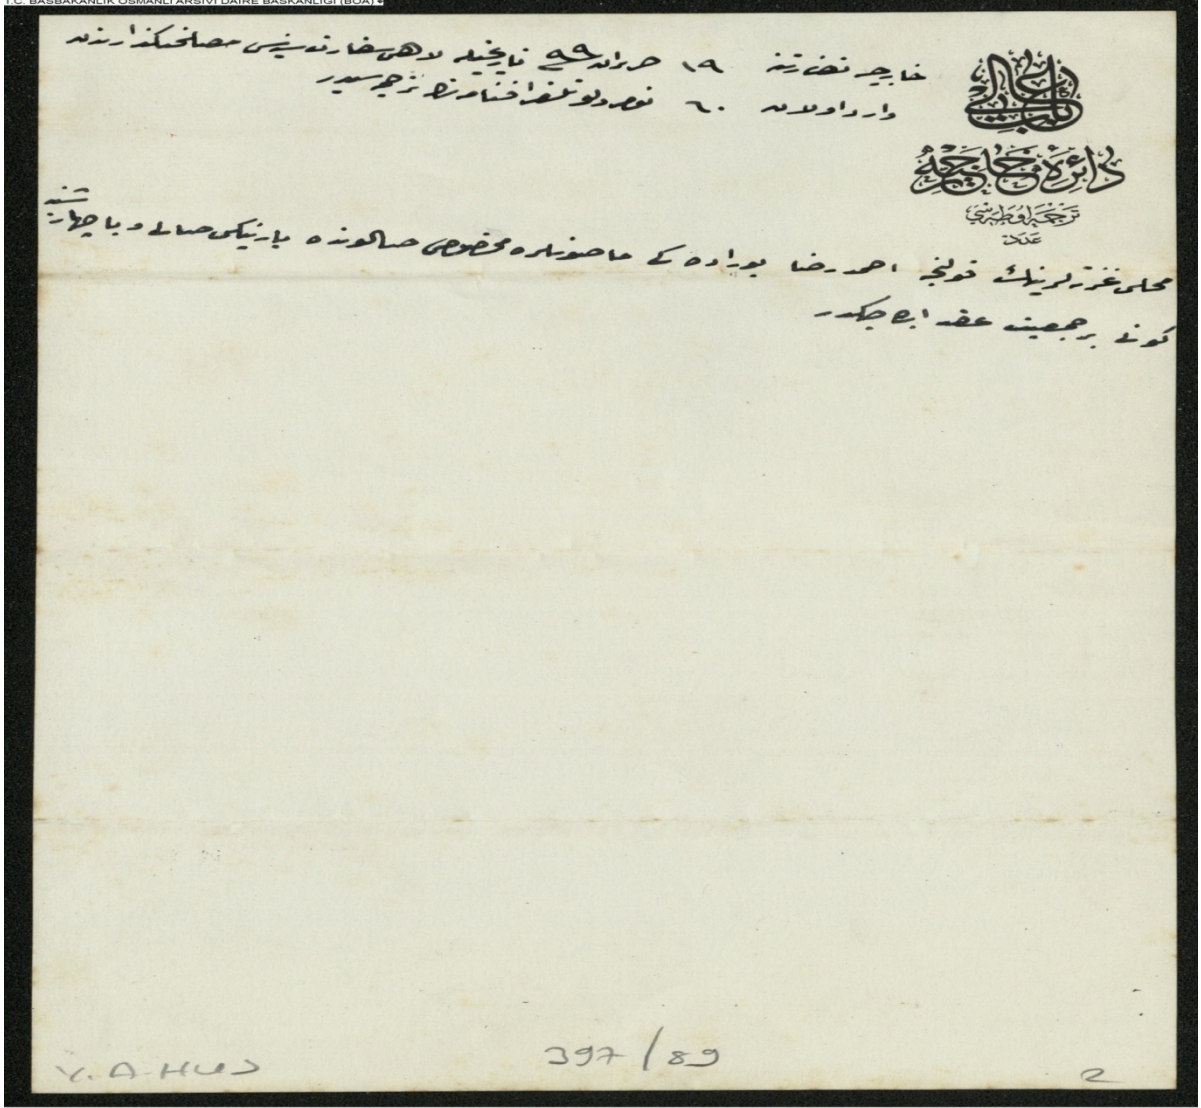 T.C. BAŞBAKANLIK OSMANLI ARŞİVİ DAİRE BAŞKANLIĞI (BOA)
باب عالی
دائرۀ خارجیه
ترجمه اوطه سی
عدد
خارجیه نظارتنه ١٩ حزیران ٩٩ تاریخیله لاهی سفارت سنیه سی مصلحتکذارندن
وارد اولان ٦٠ نومرولو تلغرافنامه نك ترجمه سیدر
محلی غزته لرینك قولنجه احمد رضا بوراده کی ماصونلره مخصوص صالونده یا رنیکی صالی ویا چهارشنبه
کونی بر جمعیت عقد ایده جکدر
Y.A.HUS
397/89
2